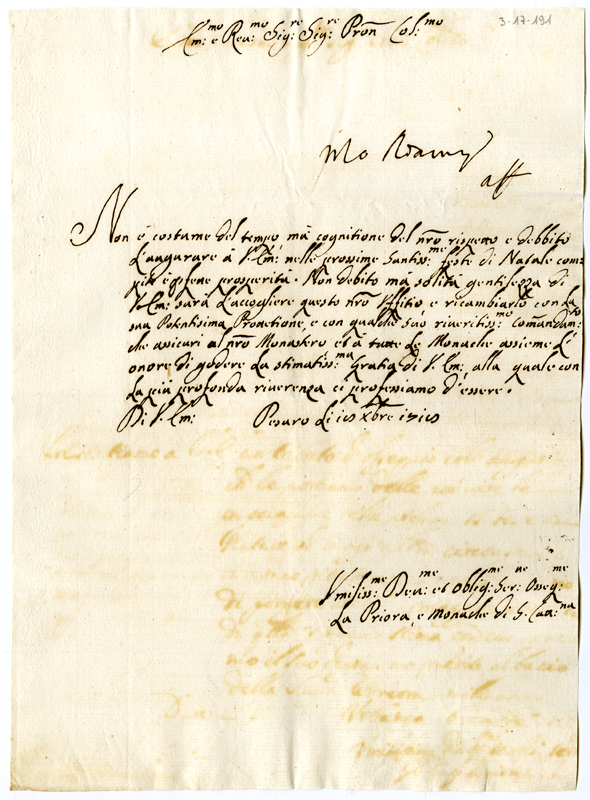 3-17-191
Em:mo e Reu:mo Sig:re Sig:re Pron Col:mo
aff
Non è costume del tempo mà cognitione del nrõ rispetto e debbito
L'augurare à V: Em: nelle prossime Santiss:me feste di Natale com-
pite è piene prosperità. Non debito mà solita gentilezza di
V: Em: sarà L'accogliere questo nrõ Uffitio e ricambiarlo con la
sua Potentissima Protettione, e con qualche suo riueritiss:mo comãndam:to
che assicuri al nrõ Monastero et à tutte Le Monache assieme L'
onore di godere La stimatiss:ma Gratia di V: Em: alla quale con
La più profonda riuerenza ci professiamo d'essere.
Di V: Em: Pesaro Li Xbre
Vmiliss:me Deu:me et Oblig:me Ser:ue Osseq:me
La Priora, e Monache di S. Catt:na